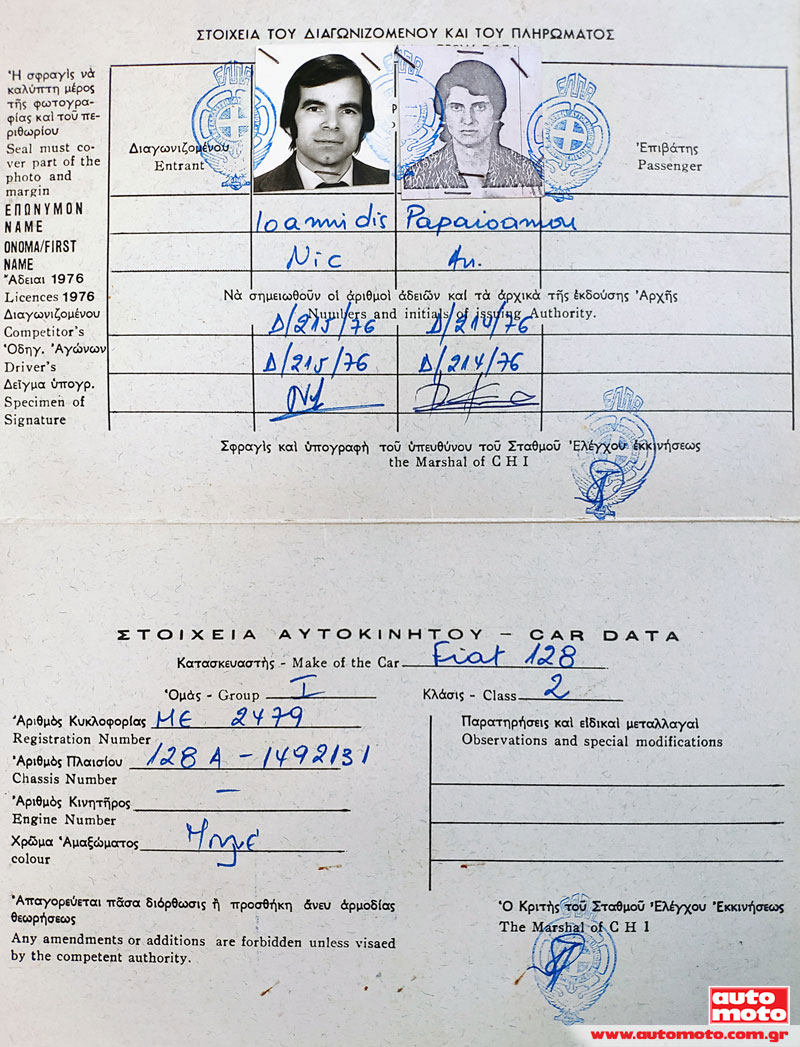 ΣΤΟΙΧΕΙΑ ΤΟΥ ΔΙΑΓΩΝΙΖΟΜΕΝΟΥ ΚΑΙ ΤΟΥ ΠΛΗΡΩΜΑΤΟΣ
Ἡ σφραγὶς νὰ
καλύπτη μέρος
τῆς φωτογρα-
φίας καὶ τοῦ πε-
ριθωρίου
Seal must co-
ver part of the
photo and
margin
Διαγωνιζομένου
Entrant
Ἐπιβάτης
Passenger
ΕΛΠΑ
ΕΛΠΑ
ΕΠΩΝΥΜΟΝ
NAME
Ioannidis Papaioannou
ΟΝΟΜΑ/FIRST
NAME
Nic An.
Ἄδειαι 1976
Licences 1976
Νὰ σημειωθοῦν οἱ ἀριθμοὶ ἀδειῶν καὶ τὰ ἀρχικὰ τῆς ἐκδούσης Ἀρχῆς
Numbers and initials of issuing Authority.
Διαγωνιζομένου
Competitor's
Δ/215/76 Δ/214/76
Ὁδηγ. Ἀγώνων
Driver's
Δ/215/76 Δ/214/76
Δεῖγμα ὑπογρ.
Specimen of
Signature
ΕΛΠΑ
Σφραγὶς καὶ ὑπογραφὴ τοῦ ὑπευθύνου τοῦ Σταθμοῦ Ἐλέγχου ἐκκινήσεως
the Marshal of C H I
ΣΤΟΙΧΕΙΑ ΑΥΤΟΚΙΝΗΤΟΥ – CAR DATA
Κατασκευαστὴς - Make of the Car Fiat 128
Ὁμὰς - Group I Κλάσις - Class 2
Ἀριθμὸς Κυκλοφορίας ME 2479
Registration Number
Ἀριθμὸς Πλαισίου 128 A - 1492131
Chassis Number
Ἀριθμὸς Κινητῆρος –
Engine Number
Χρῶμα Ἀμαξώματος Μπλέ
colour
Παρατηρήσεις καὶ εἰδικαὶ μεταλλαγαὶ
Observations and special modifications
Ἀπαγορεύεται πᾶσα διόρθωσις ἢ προσθήκη ἄνευ ἁρμοδίας
θεωρήσεως
Any amendments or additions are forbidden unless visaed
by the competent authority.
Ὁ Κριτὴς τοῦ Σταθμοῦ Ἐλέγχου Ἐκκινήσεως
The Marshal of C H I
auto
moto
www.automoto.com.gr